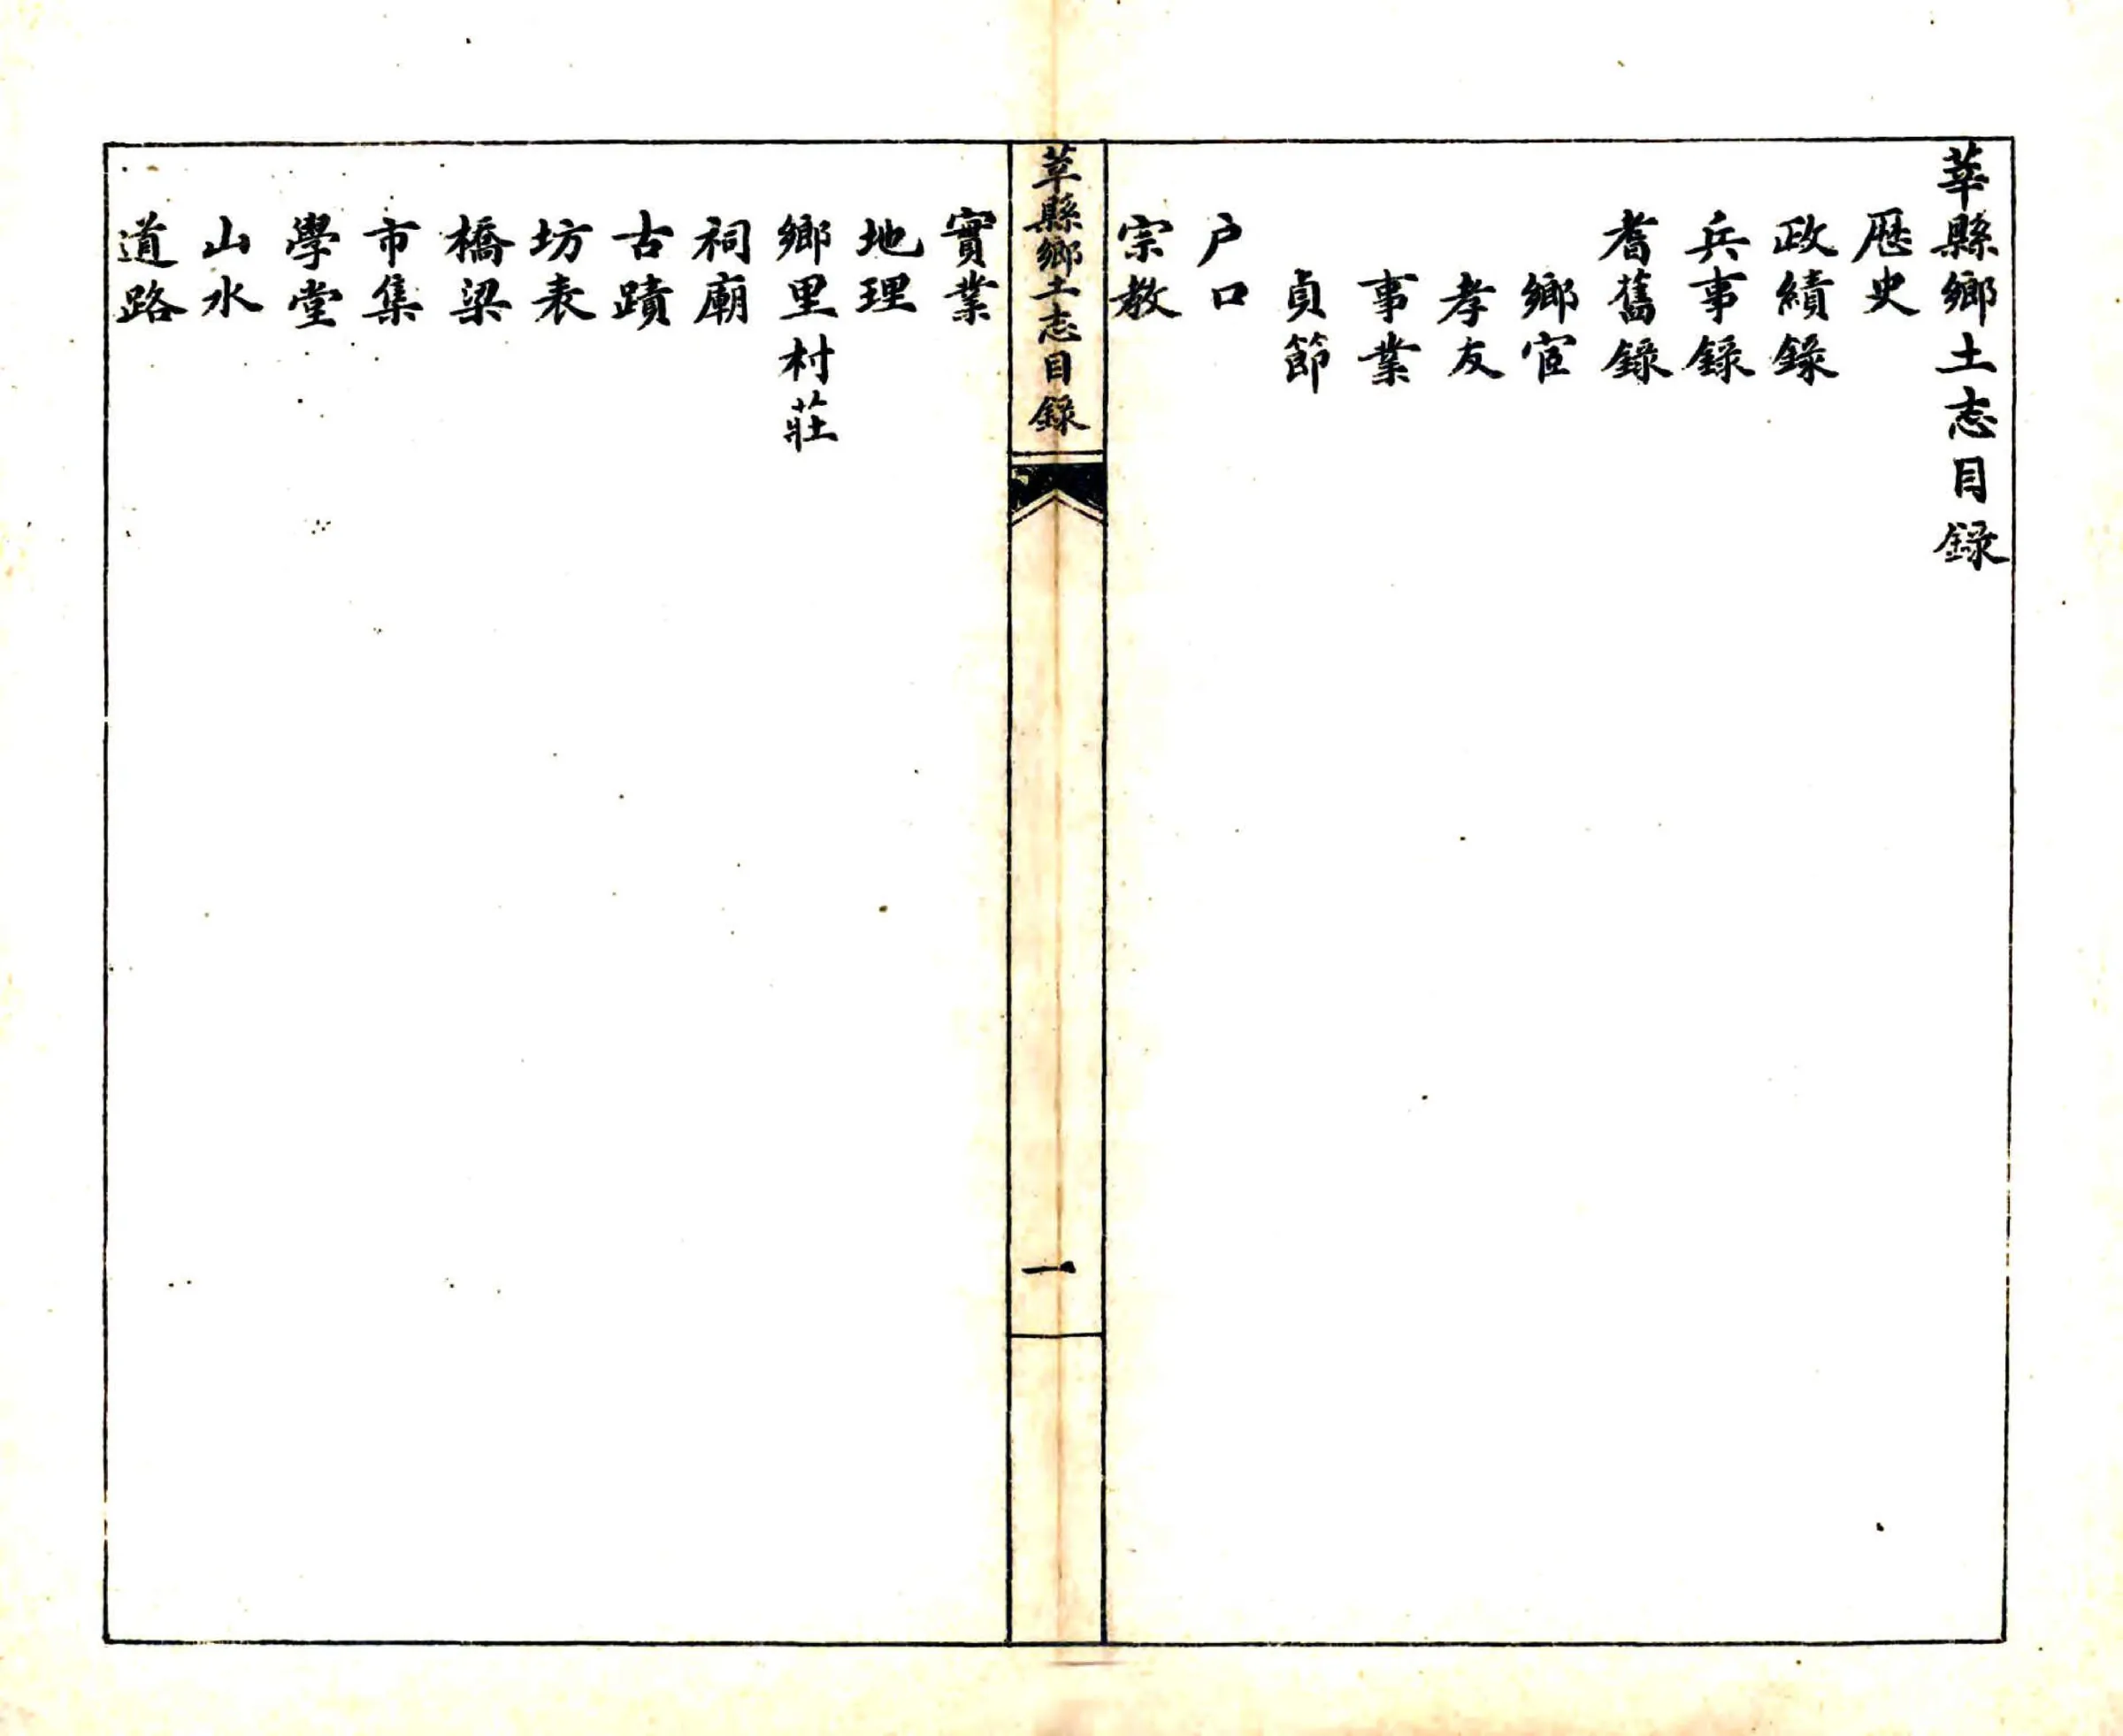 莘縣鄉土志目錄
歷史
政績錄
兵事錄
耆舊錄
鄉宦
孝友
事業
貞節
户口
宗教
莘縣鄉土志目錄
一
實業
地理
鄉里村莊
祠廟
古蹟
坊表
橋梁
市集
學堂
山水
道路